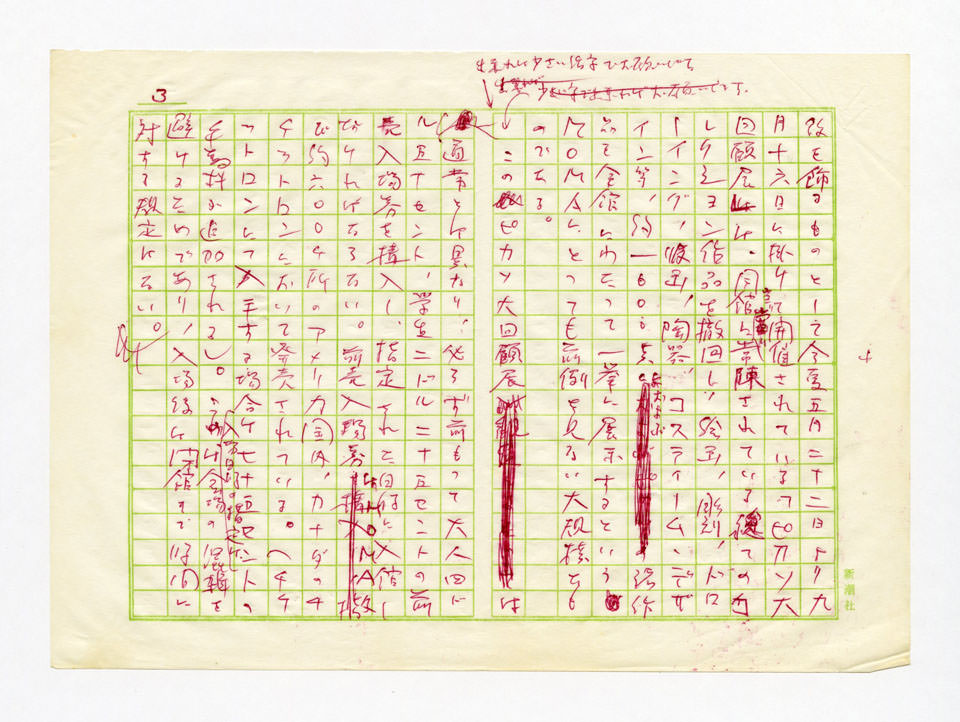 3
出来れば少さい活字で大石願いします
改を飾るものとして今夏五月二十二日より九
月十六日に掛けて開催されている〈ピカソ大
回顧展〉は、同館に常陳されている總てのコ
レクション作品を撤回し、絵画、彫刻、ドロ
ーイング、版画、陶器、コスチューム・デザ
イン等、約一〇〇〇点におよぶ張作
品を全館にわたって一挙に展示するという
MOMAにとっても前例を見ない大規模なも
のである。
この〈ピカソ大回顧展〉は
通常とは異なり、必ず前もって大人四ド
ル五十セント、学生二ドル二十五セントの前
売入場券を購入し、指定された日時に入館し
なければならない。前売入場券は
び約六〇〇ケ所のアメリカ国内、カナダのチ
ケトロンにおいて発売されている。〈チケ
ットロンにて入手する場合は七十五セントの
手数料が追加される〉。入場日時の指定は会場の混雑を
避けるためであり、入場後は閉館まで時間に
対する規定はない。
新潮社